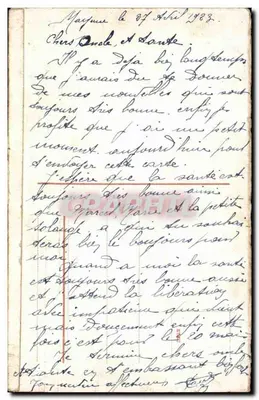 Mayenne le 27 Avril 1923.
Chers Oncle et Tante.
Il y a déja bien longtemps
que j'aurais du te donner
de mes nouvelles qui sont
toujours très bonne, enfin je
profite que j'ai un petit
moment aujourd'hui pour
t'envoyer cette carte.
J'espère que ta santé est
toujours très bonne ainsi
que et la petite
Solange à qui tu
bien le toujours pour
moi
Quand a moi la santé
est toujours très bonne aussi
et attend la libération
avec impatience que vient
mais doucement enfin cette
fois c'est pour le 20 mai
Je termine chers oncle
et tante en t'embrassant bien
affectueux